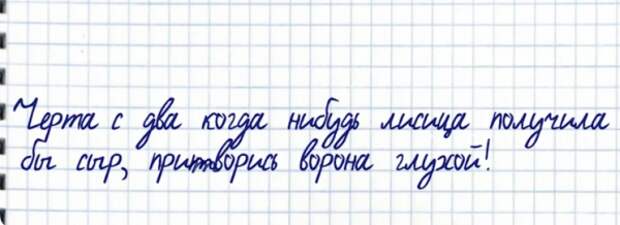 Черта с два когда нибудь лисица получила
бы сыр, притворись ворона глухой!